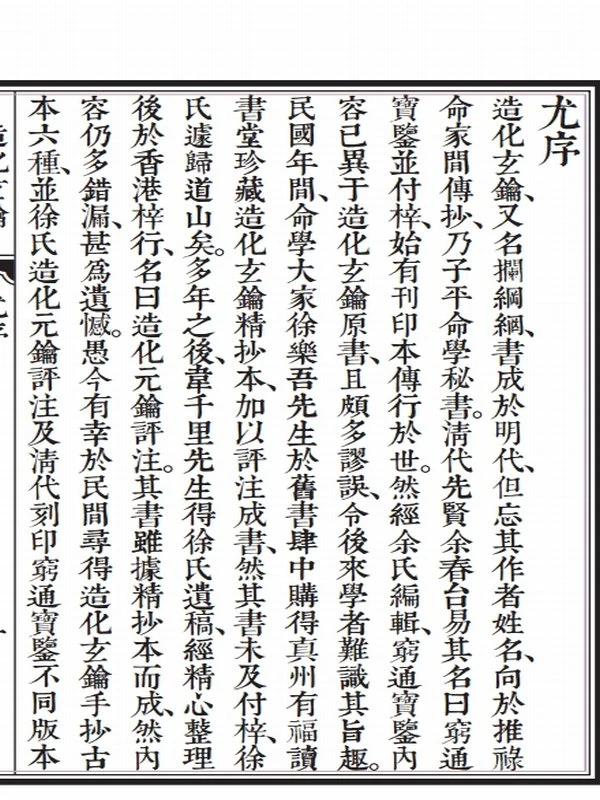 尤序
造化玄鑰、又名攔綱網、書成於明代、但忘其作者姓名、向於推祿
命家間傳抄、乃子平命學秘書。清代先賢余春台易其名曰窮通
寶鑒並付梓、始有刊印本傳行於世。然經余氏編輯、窮通寶鑒內
容已異于造化玄鑰原書、且頗多謬誤、令後來學者難識其旨趣。
民國年間、命學大家徐樂吾先生於舊書肆中購得真州有福讀
書堂珍藏造化玄鑰精抄本、加以評注成書、然其書未及付梓、徐
氏遽歸道山矣。多年之後、韋千里先生得徐氏遺稿、經精心整理
後於香港梓行、名曰造化元鑰評注。其書雖據精抄本而成、然內
容仍多錯漏、甚為遺憾。愚今有幸於民間尋得造化玄鑰手抄古
本六種、並徐氏造化元鑰評注及清代刻印窮通寶鑒不同版本